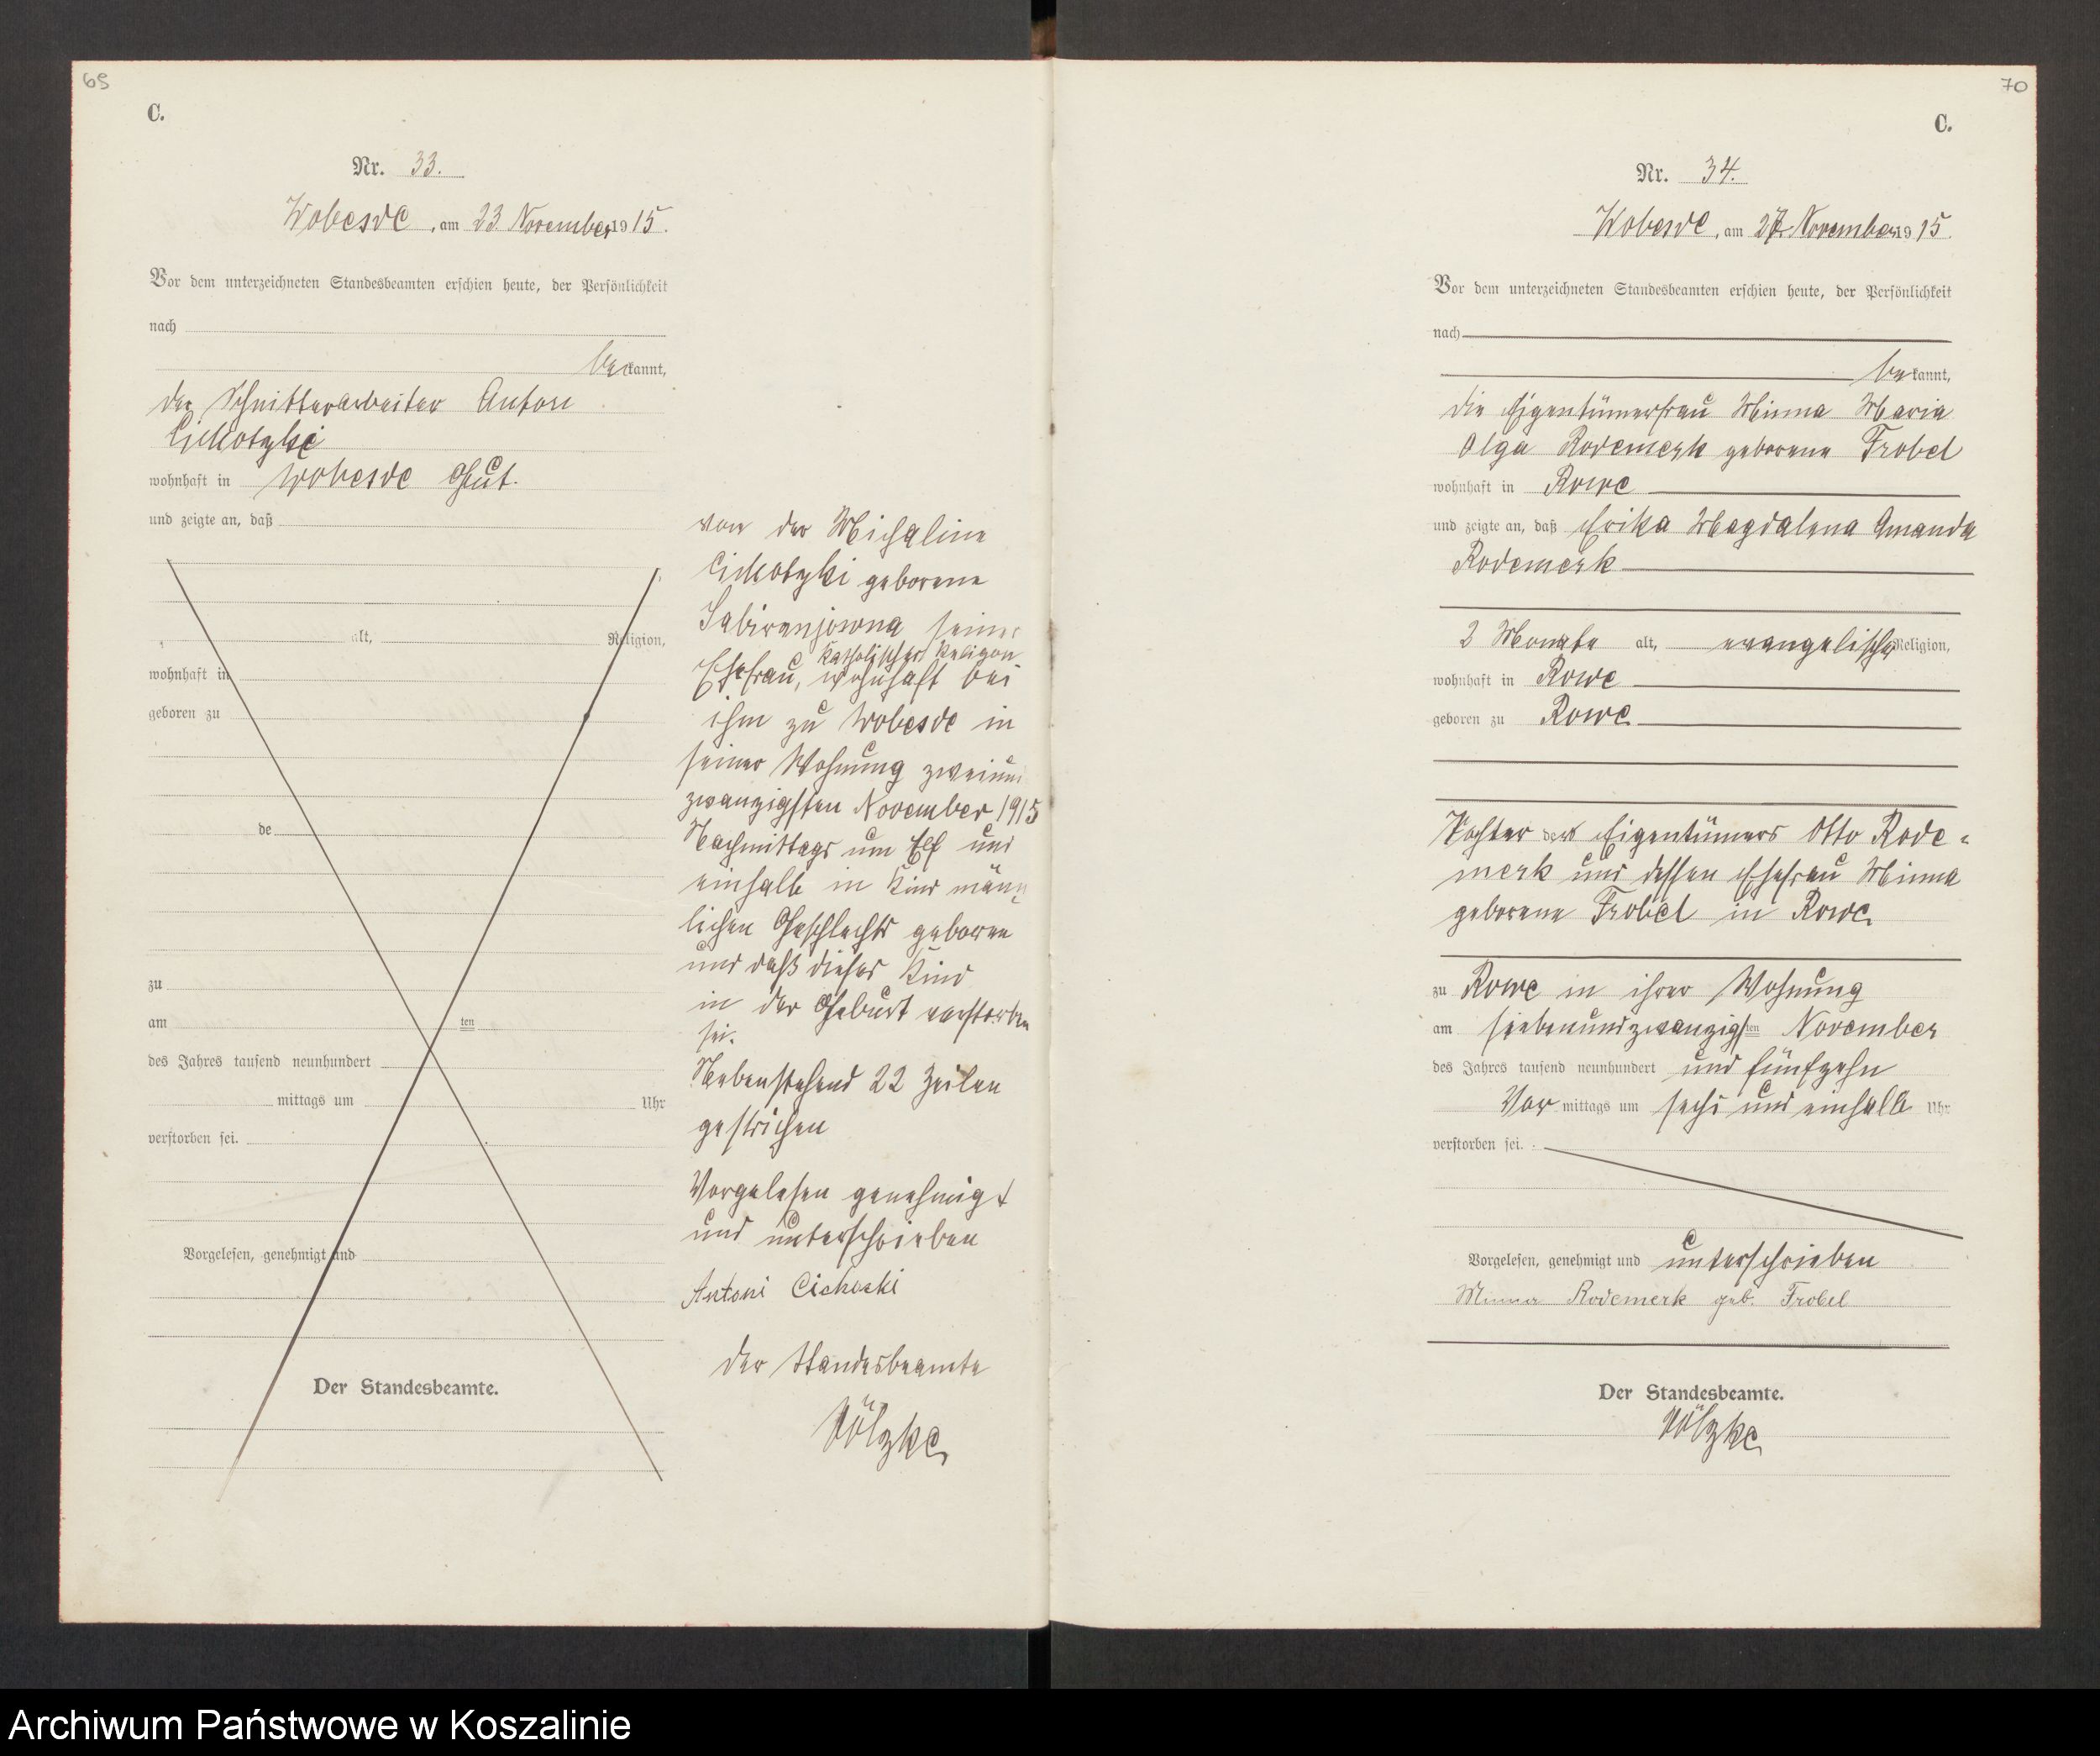 69
C.
Nr. 33.
Wobesde, am 23 November 1915.
Vor dem unterzeichneten Standesbeamten erschien heute, der Persönlichkeit
nach
bekannt,
der Schnitterarbeiter Anton
wohnhaft in Wobesde Gut.
und zeigte an, daß
alt, Religion,
wohnhaft in
geboren zu
de
zu
am ten
des Jahres tausend neunhundert
mittags um Uhr
verstorben sei.
Vorgelesen, genehmigt und
Der Standesbeamte.
von der Michaline
geborene
seiner
katholischer Religon
Ehefrau, wohnhaft bei
ihm zu Wobesde in
seiner Wohnung zweiund
zwanzigsten November 1915
Nachmittags um Elf und
einhalb in Kind männ
lichen Geschlechts geboren
und daß dieses Kind
in der Geburt verstorben
sei.
Nebenstehend 22 Zeilen
gestrichen
Vorgelesen genehmigt
und unterschrieben
Antoni Cichocki
der Standesbeamte
Völzke
70
C.
Nr. 34.
Wobesde, am 27. November 1915.
Vor dem unterzeichneten Standesbeamten erschien heute, der Persönlichkeit
nach
bekannt,
die Eigentümerfrau Minna Maria
Olga Rodemerk geborene Frobel
wohnhaft in Rowe
und zeigte an, daß Erika Magdalena Amanda
Rodemerk
2 Monate alt, evangelischer Religion,
wohnhaft in Rowe
geboren zu Rowe
Tochter des Eigentümers Otto Rode-
merk und dessen Ehefrau Minna
geborene Frobel in Rowe
zu Rowe in ihrer Wohnung
am siebenundzwanzigsten November
des Jahres tausend neunhundert und fünfzehn
Vor mittags um sechs und einhalb Uhr
verstorben sei.
Vorgelesen, genehmigt und unterschrieben
Minna Rodemerk geb. Frobel
Der Standesbeamte.
Völzke
Archiwum Państwowe w Koszalinie